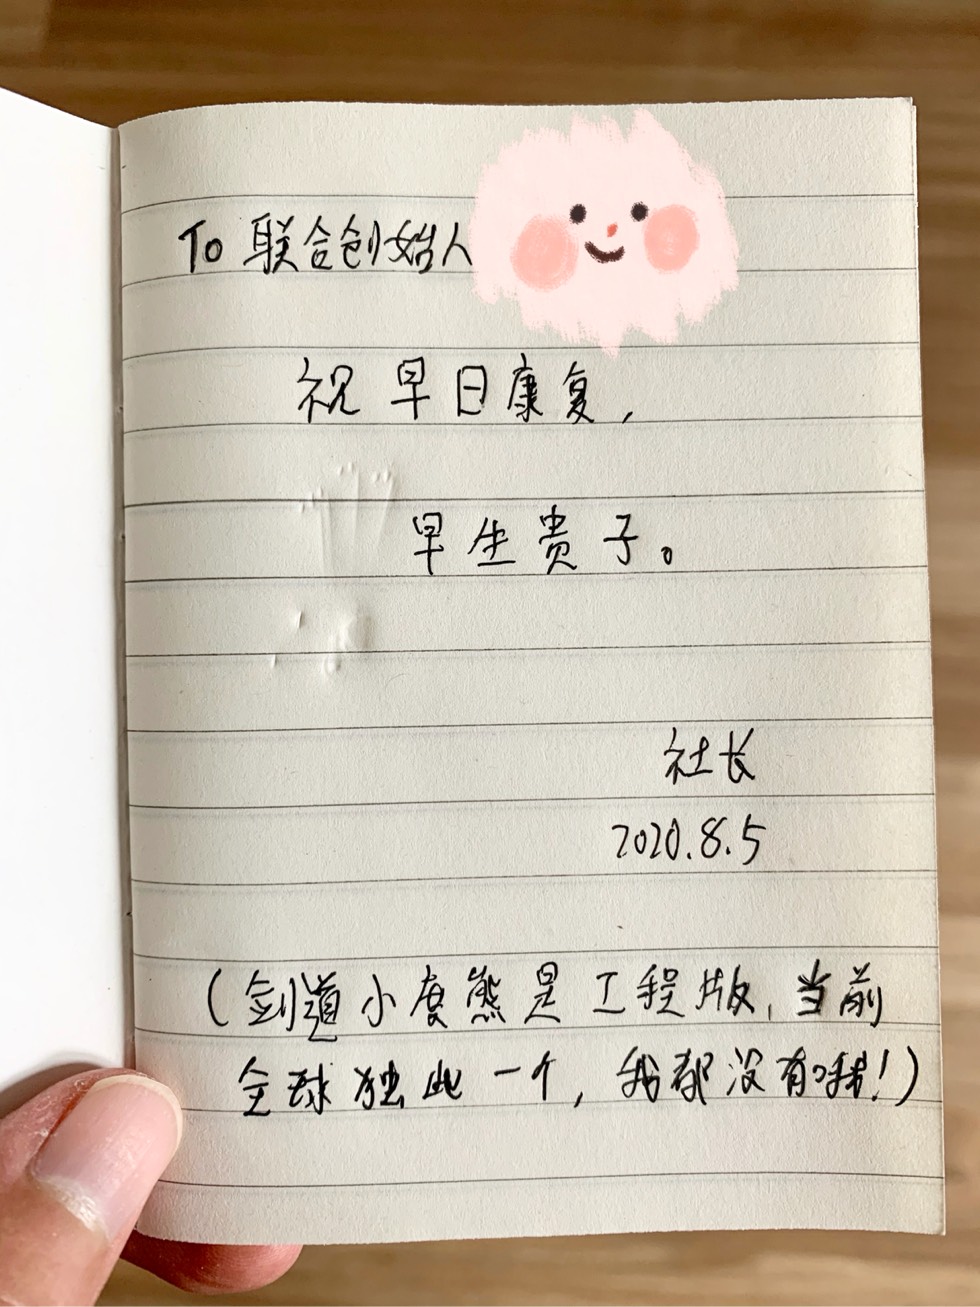 To 联合创始人
祝早日康复,
早生贵子。
社长
2020.8.5
(剑道小度熊是工程版,当前
全球独此一个,我都没有哦!)